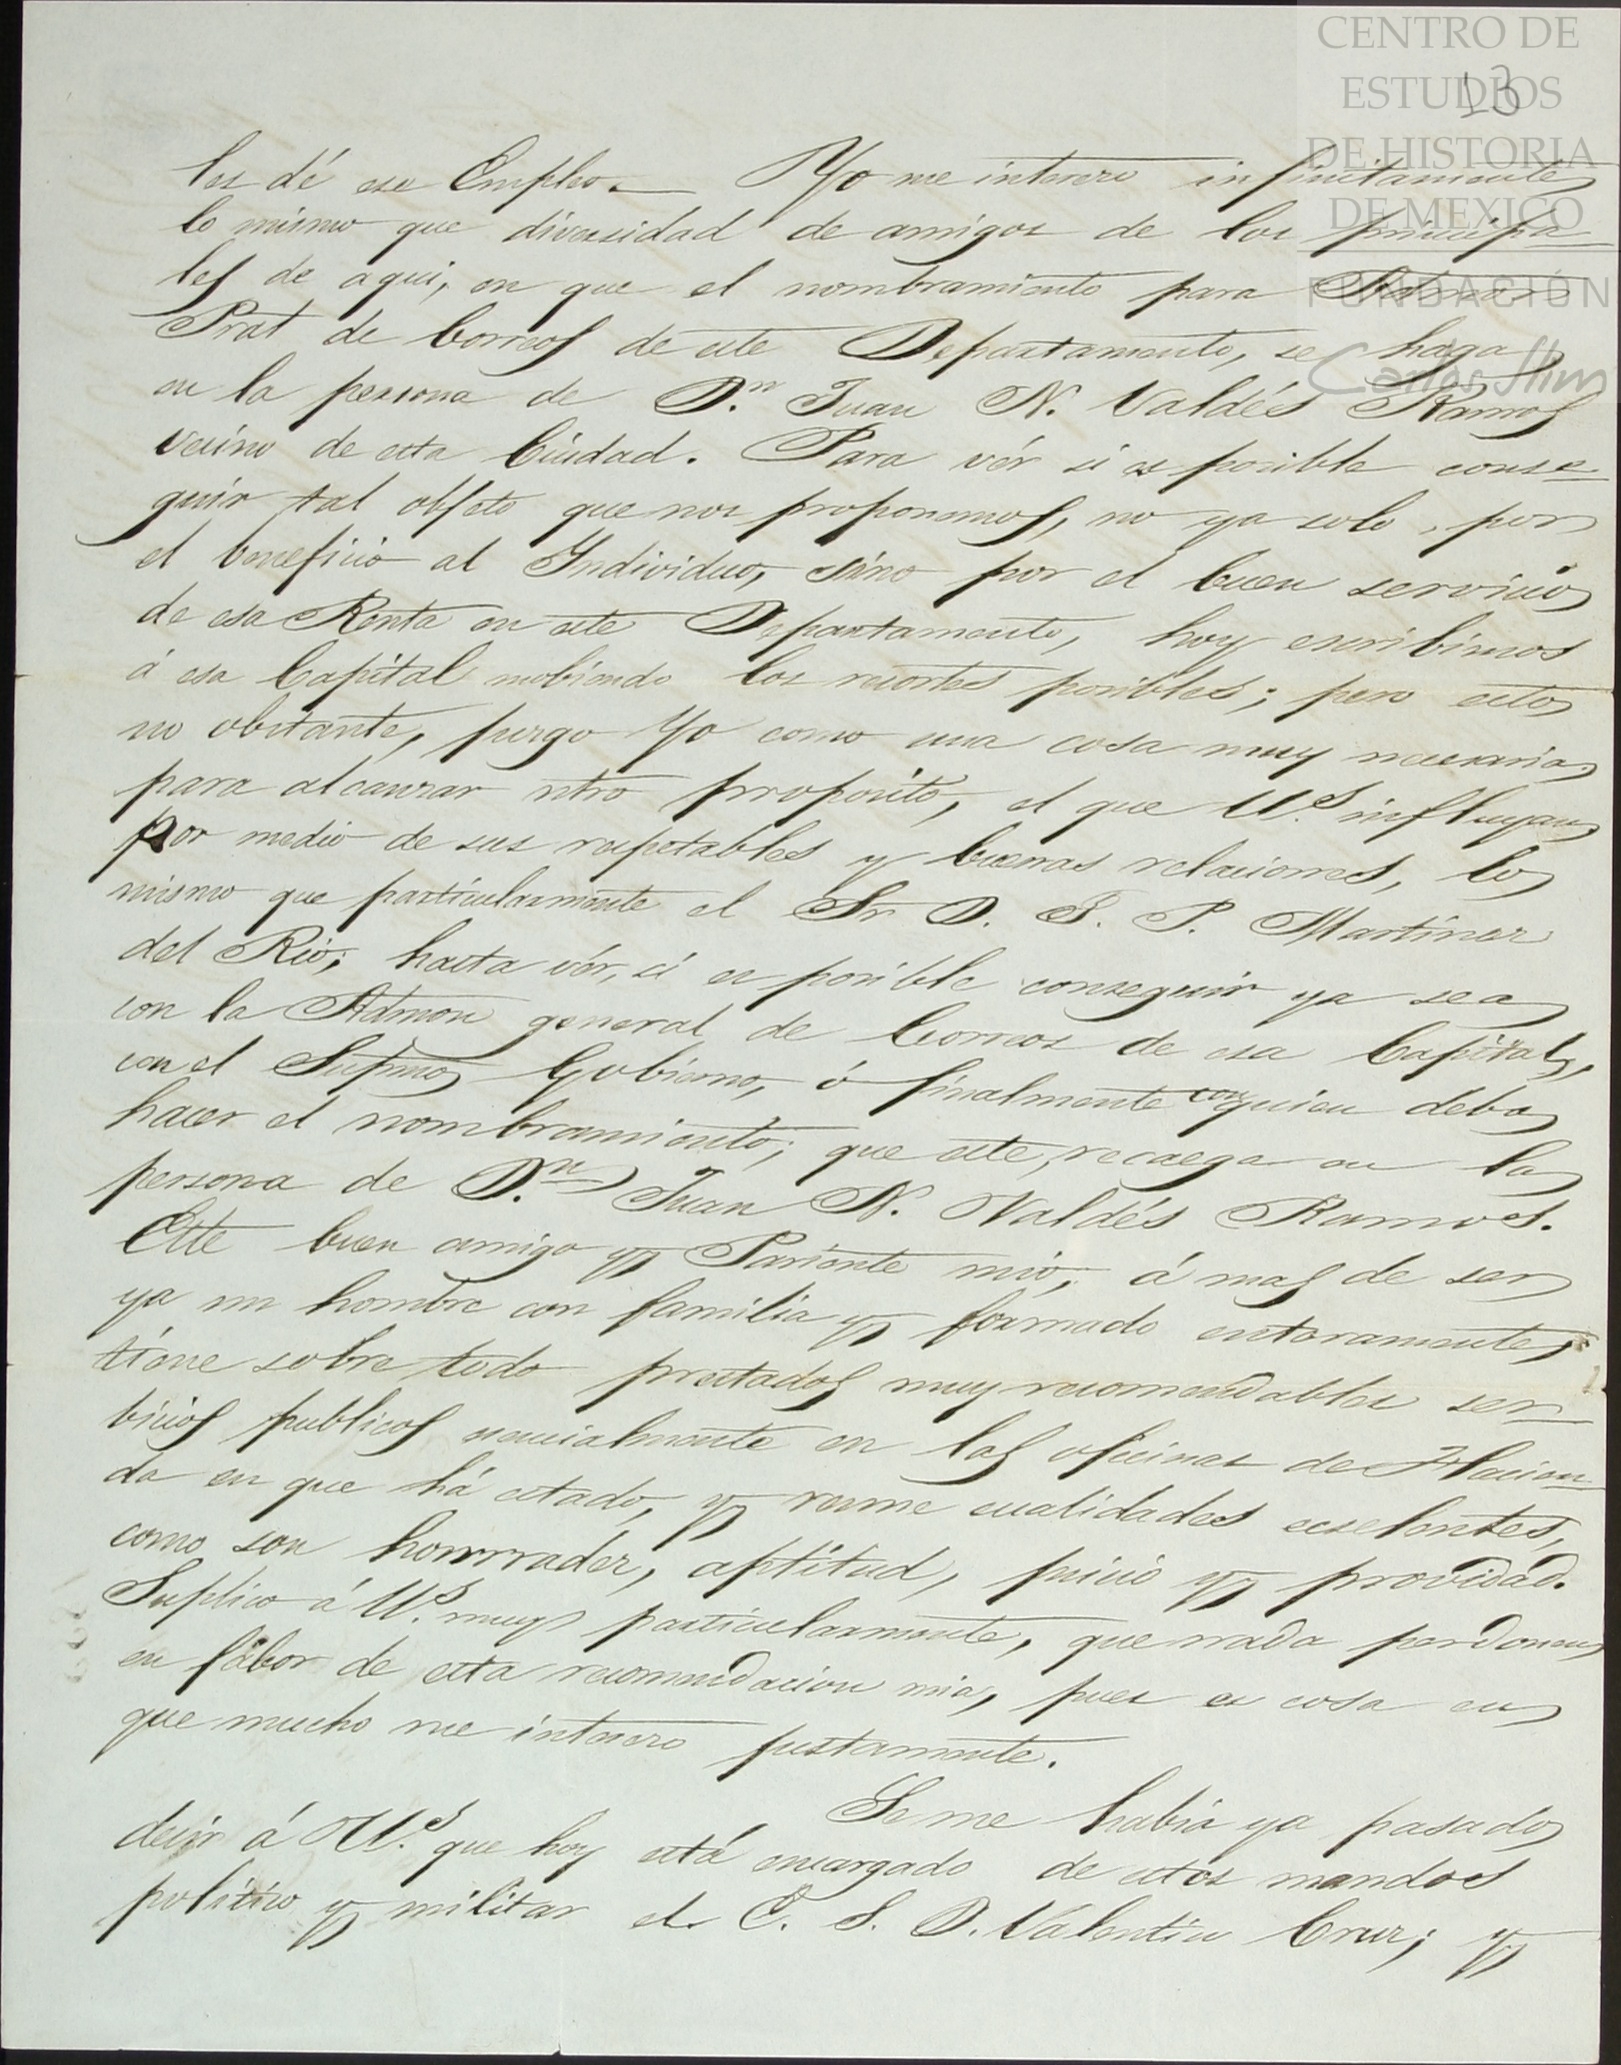 CENTRO DE
ESTUDIOS
DE HISTORIA
DE MEXICO
FUNDACIÓN
Carlos Slim
13
les dé ese Empleo. Yo me intereso infinitamente
lo mismo que diversidad de amigos de los principa
les de aqui, en que el nombramiento para
Pral de Correos de este Departamento, se haga
en la persona de D.n Juan N. Valdés Ramos
vecino de esta Ciudad. Para vér si es posible conse
guir tal objeto que nos proponemos, no ya solo, por
el beneficio al Individuo, sino por el buen servicio
de esa Renta en este Departamento, hoy escribimos
á esa Capital mobiendo los resortes posibles; pero esto
no obstante, jusgo Yo como una cosa muy necesaria
para alcanzar ntro proposito, el que U.s influyan
por medio de sus respetables y buenas relaciones, lo
mismo que particularmente el Sr. D. J. P. Martinez
del Rio; hasta vér, si es posible conseguir ya sea
con la Admon general de Correos de esa Capital,
con el Supmo Gobierno, ó finalmente con quien deba
hacer el nombramiento; que este, recaega en la
persona de D.n Juan N. Valdés Ramos.
Este buen amigo y Pariente mio, á mas de ser
ya un hombre con familia y formado enteramente,
tiene sobre todo prestados muy recomendables ser
bicios publicos esencialmente en las oficinas de Hacien
da en que há estado, y reune cualidades ecselentes,
como son honrradez, aptitud, juicio y providad.
Suplico á U.s muy particularmente, que nada perdonen
en fabor de esta recomendacion mia, pues es cosa en
que mucho me intereso justamente.
Se me habia ya pasado
decir á U.s que hoy está encargado de estos mandos
politico y militar el E. S. D. Valentin Cruz; y